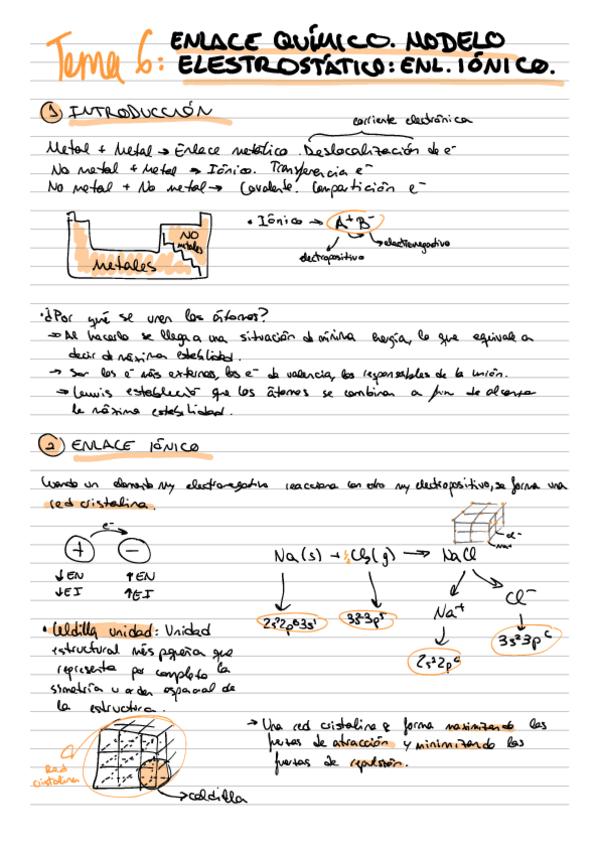 Tema 6: ENLACE QUÍMICO. MODELO
ELESTROSTÁTICO: ENL. IÓNICO.
1 INTRODUCCIÓN
corriente electrónica
Metal + Metal → Enlace metálico. Deslocalización de e⁻
No metal + Metal → Iónico. Transferencia e⁻
No metal + No metal → Covalente. Compartición e⁻
NO
metales
Metales
• Iónico → A⁺B⁻
electronegativo
electropositivo
• ¿Por qué se unen los átomos?
→ Al hacerlo se llega a una situación d mínima energía, lo que equivale a
decir d máxima estabilidad.
→ Son los e⁻ más externos, los e⁻ de valencia, los responsables de la unión.
→ Lewis estableció que los átomos se combinan a fin de alcanzar
la máxima estabilidad.
2 ENLACE IÓNICO
Cuando un elemento muy electronegativo reacciona con otro muy electropositivo, se forma una
red cristalina.
e⁻
+ −
↓EN ↑EN
↓EI ↑EI
Cl⁻
Na⁺
Na(s) + ½Cl₂(g) → NaCl
Na⁺ Cl⁻
2s²2p⁶3s¹ 3s²3p⁵
3s²3p⁶
2s²2p⁶
• Celdilla unidad: Unidad
estructural más pequeña que
representa por completo la
simetría u orden espacial de
la estructura.
Red
cristalina
celdilla
→ Una red cristalina se forma maximizando las
fuerzas de atracción y minimizando las
fuerzas de repulsión.